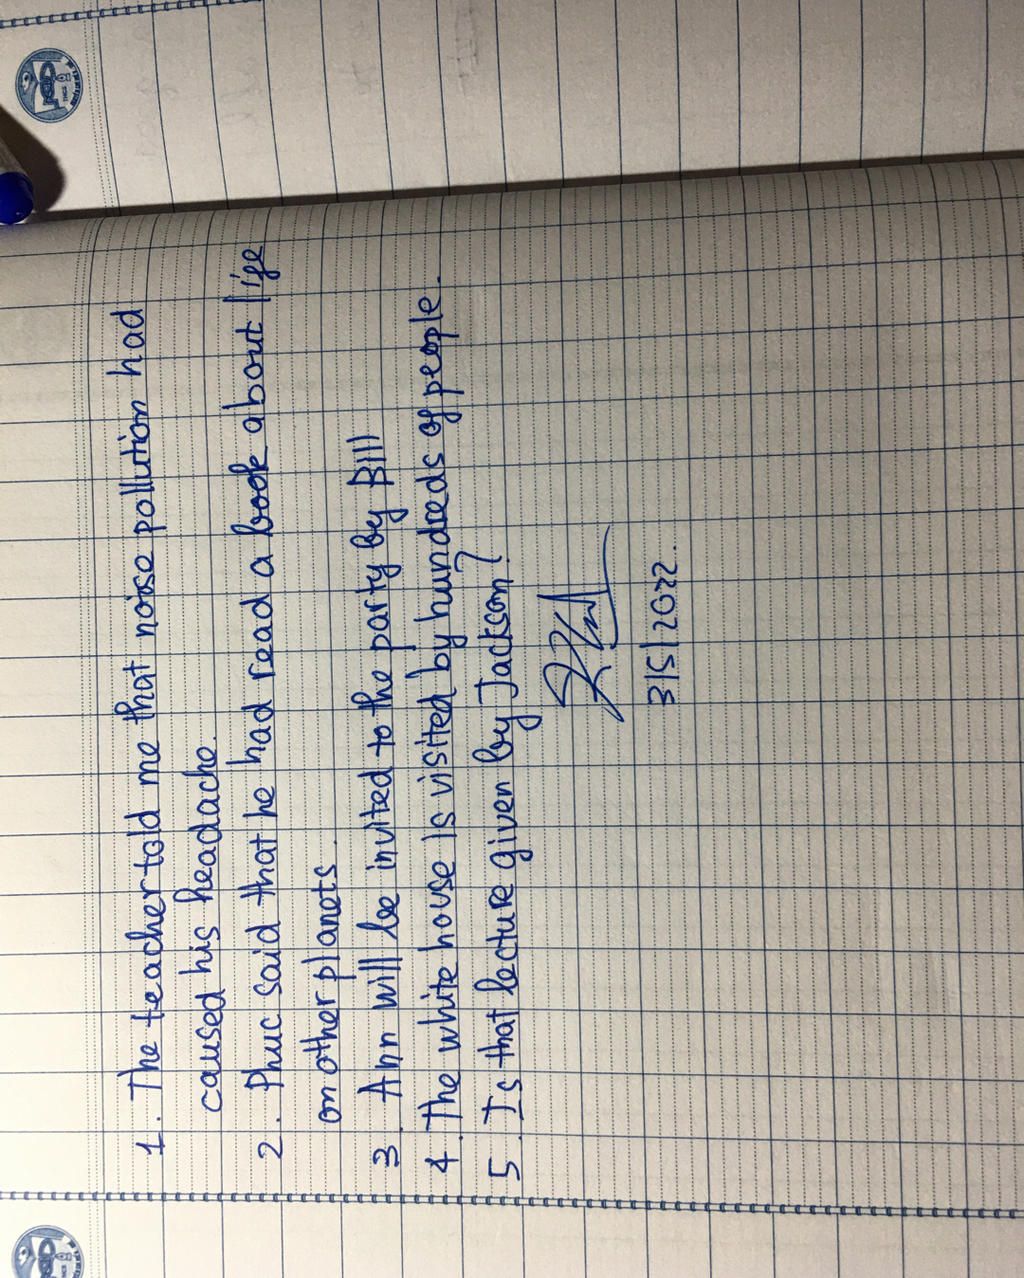 1. The teacher told me that noise pollution had
caused his headache.
2. Phuc said that he had read a book about life
on other planets.
3. Ann will be invited to the party by Bill
4. The white house is visited by hundreds of people.
5. Is that lecture given by Jackson?
3/5/2022.